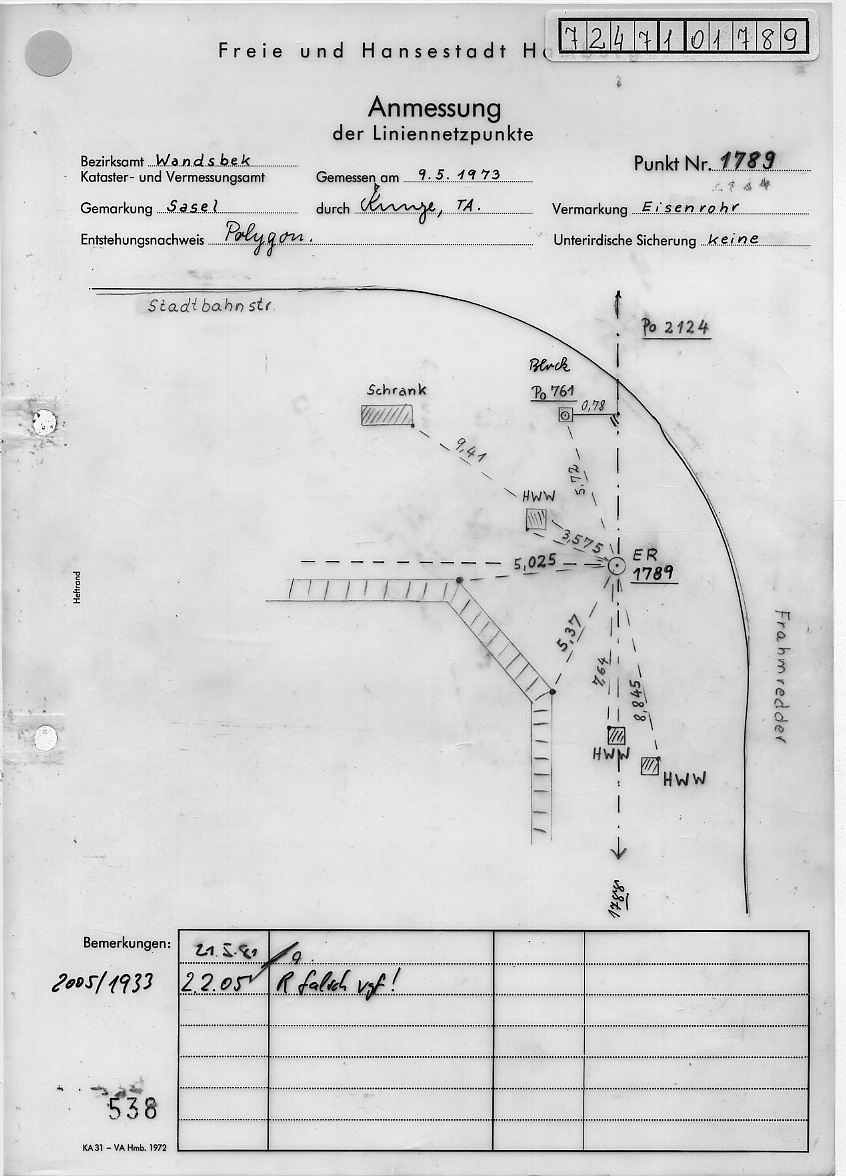 724710 1789
Freie und Hansestadt
Anmessung
der Liniennetzpunkte
Bezirksamt Wandsbek
Kataster- und Vermessungsamt
Gemessen am 9.5.1973
Punkt Nr. 1789
Gemarkung Sasel
durch Kunze, TA.
Vermarkung Eisenrohr
Entstehungsnachweis Polygon.
Unterirdische Sicherung keine
Stadtbahnstr.
Po 2124
Block
Po 761
0,78
Schrank
9,41
5,72
HWW
3,575
5,025
ER
1789
5,37
7,64
8,845
HWW
HWW
Frahmredder
Heftrand
Bemerkungen:
21.5.81
2005/1933 2.2.05 R falsch vgf!
538
KA 31 – VA Hmb. 1972